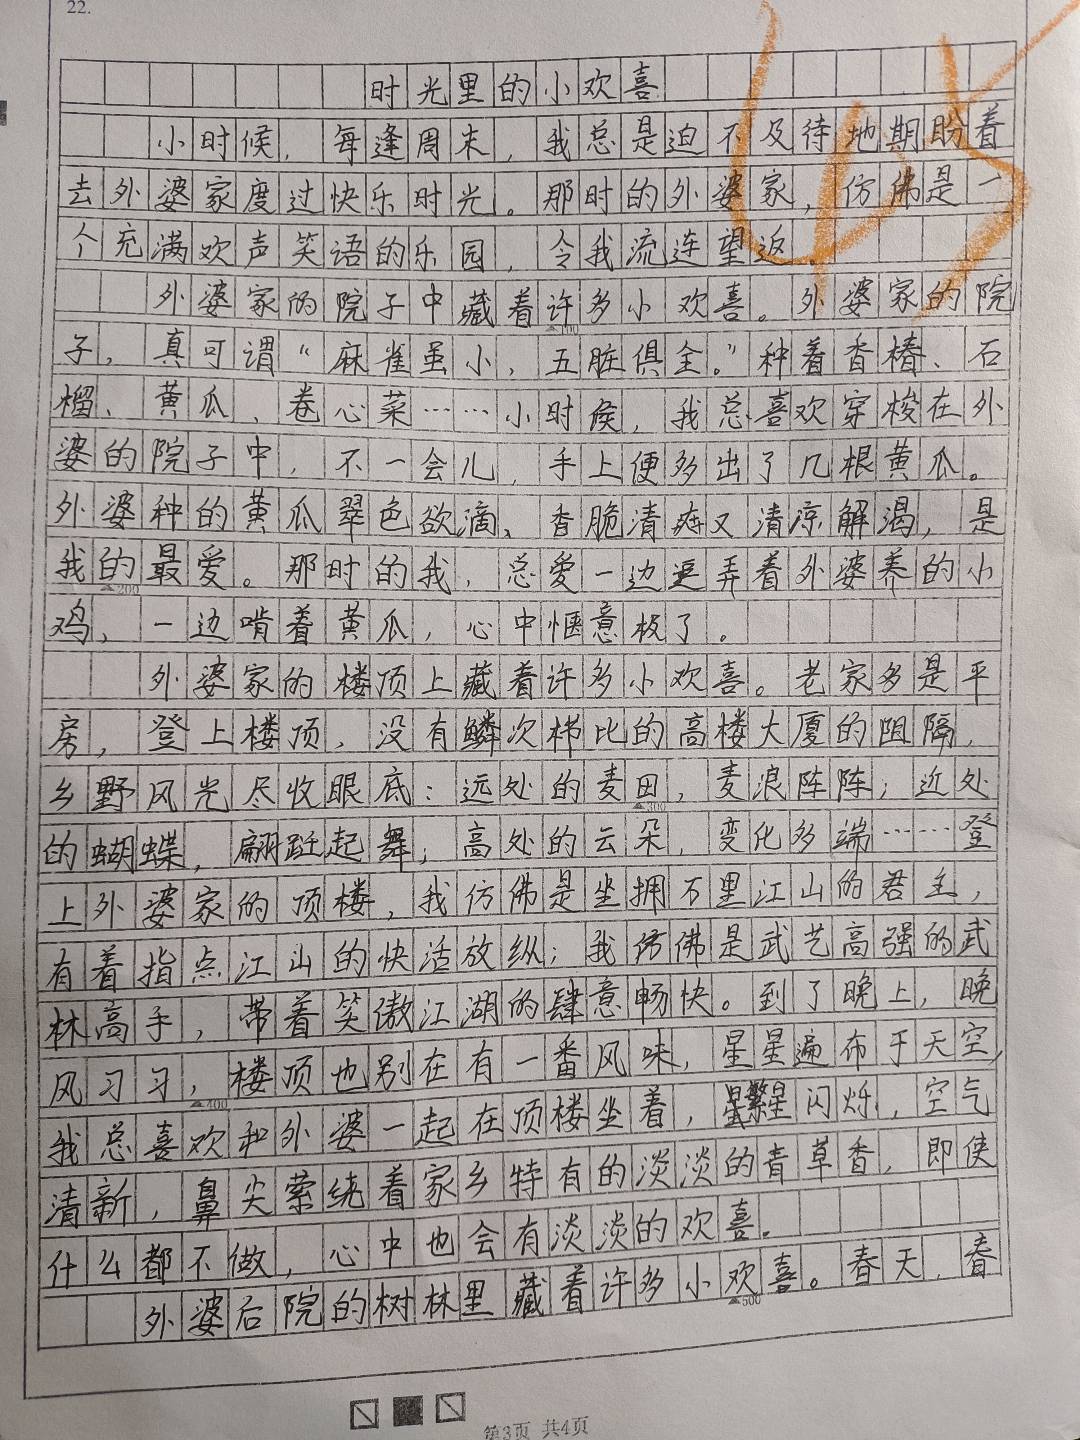 22.
时光里的小欢喜
小时候，每逢周末，我总是迫不及待地期盼着
去外婆家度过快乐时光。那时的外婆家，仿佛是一
个充满欢声笑语的乐园，令我流连望返。
外婆家的院子中藏着许多小欢喜。外婆家的院
▲100
子，真可谓“麻雀虽小，五脏俱全。”种着香椿、石
榴、黄瓜、卷心菜……小时侯，我总喜欢穿梭在外
婆的院子中，不一会儿，手上便多出了几根黄瓜。
外婆种的黄瓜翠色欲滴、香脆清爽又清凉解渴，是
我的最爱。那时的我，总爱一边逗弄着外婆养的小
▲200
鸡，一边啃着黄瓜，心中惬意极了。
外婆家的楼顶上藏着许多小欢喜。老家多是平
房，登上楼顶，没有鳞次栉比的高楼大厦的阻隔，
乡野风光尽收眼底：远处的麦田，麦浪阵阵；近处
▲300
的蝴蝶，翩跹起舞，高处的云朵，变化多端……登
上外婆家的顶楼，我仿佛是坐拥万里江山的君主，
有着指点江山的快活放纵；我仿佛是武艺高强的武
林高手，带着笑傲江湖的肆意畅快。到了晚上，晚
风习习，楼顶也别在有一番风味，星星遍布于天空，
▲400
我总喜欢和外婆一起在顶楼坐着，繁星闪烁，空气
清新，鼻尖萦绕着家乡特有的淡淡的青草香，即使
什么都不做，心中也会有淡淡的欢喜。
外婆后院的树林里藏着许多小欢喜。春天，春
▲500
第3页 共4页